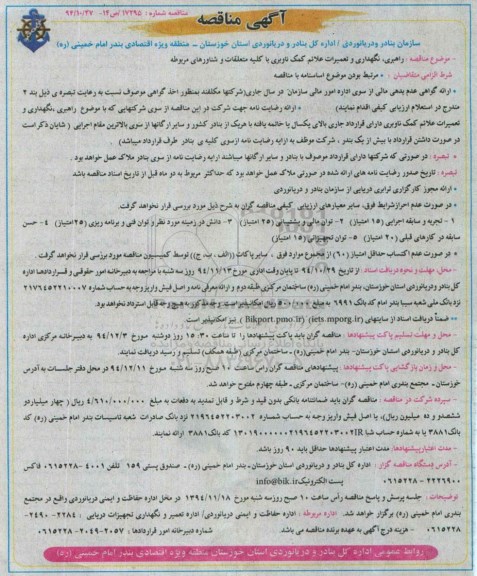 مناقصه شماره : ۱۷۲۹۵ /ص۱۴- ۹۴/۱۰/۲۷
آگهی مناقصه
سازمان بنادر ودریانوردی / اداره کل بنادر و دریانوردی استان خوزستان ــ منطقه ویژه اقتصادی بندر امام خمینی (ره)
- موضوع مناقصه : راهبری، نگهداری و تعمیرات علائم کمک ناوبری با کلیه متعلقات و شناورهای مربوطه
شرط الزامی متقاضیان : • مرتبط بودن موضوع اساسنامه با مناقصه
• ارائه گواهی عدم بدهی مالی از سوی اداره امور مالی سازمان در سال جاری(شرکتها مکلفند بمنظور اخذ گواهی موصوف نسبت به رعایت تبصره ی ذیل بند ۲
مندرج در استعلام ارزیابی کیفی اقدام نمایند) • ارائه رضایت نامه جهت شرکت در این مناقصه از سوی شرکتهایی که با موضوع راهبری ،نگهداری و
تعمیرات علائم کمک ناوبری دارای قرارداد جاری بالای یکسال یا خاتمه یافته با هریک از بنادر کشور و سایر ارگانها از سوی بالاترین مقام اجرایی ( شایان ذکر است
در صورت داشتن قرارداد با بیش از یک بندر ، شرکت موظف به ارایه رضایت نامه ازسوی کلیه ی بنادر طرف قرارداد میباشد)
• تبصره : در صورتی که شرکتها دارای قرارداد موصوف با بنادر و سایر ارگانها میباشند ارایه رضایت نامه از سوی بنادر ملاک عمل خواهد بود .
تبصره : تاریخ صدور رضایت نامه های ارائه شده در صورتی ملاک عمل خواهد بود که حداکثر مربوط به دو ماه قبل از تاریخ اسناد مناقصه باشد
• ارائه مجوز کارگزاری ترابری دریایی از سازمان بنادر و دریانوردی
• در صورت عدم احراز شرایط فوق، سایر معیارهای ارزیابی کیفی مناقصه گران به شرح ذیل مورد بررسی قرار نخواهد گرفت.
۱ - تجربه و سابقه اجرایی (۱۵ امتیاز) ۲- توان مالی و پشتیبانی (۲۵ امتیاز) ۳- دانش در زمینه مورد نظر و توان فنی و برنامه ریزی (۲۵امتیاز) ۴- حسن
سابقه در کارهای قبلی (۲۰ امتیاز) ۵- توان تجهیزاتی (۱۵ امتیاز)
• در صورت عدم اکتساب حداقل امتیاز (۶۰) از مجموع موارد فوق ، سایر پاکات ((الف ، ب، ج)) توسط کمیسیون مناقصه مورد بررسی قرار نخواهد گرفت .
- محل، مهلت و نحوه دریافت اسناد : از تاریخ ۹۴/۱۰/۲۹ تا پایان وقت اداری مورخ ۹۴/۱۱/۱۳ روز سه شنبه با مراجعه به دبیرخانه امور حقوقی و قراردادها اداره
کل بنادر ودریانوردی استان خوزستان، بندر امام خمینی(ره) ساختمان مرکزی طبقه دوم و ارائه معرفی نامه و اصل فیش واریز وجه به حساب شماره ۲۱۷۹۴۵۲۲۱۰۰۰۷
نزد بانک ملی شعبه سیبا بندر امام کد بانک ۶۹۹۱ به مبلغ
** ضمناً دریافت اسناد از سایتهای (iets.mporg.ir) ، (Bikport.pmo.ir) نیز امکانپذیر است.
- محل و مهلت تسلیم پاکت پیشنهادها : مناقصه گران باید پاکت پیشنهادها را تا ساعت ۱۵:۳۰ روز دوشنبه مورخ ۹۴/۱۲/۳ به دبیرخانه مرکزی اداره
کل بنادر و دریانوردی استان خوزستان- بندر امام خمینی(ره) ــ ساختمان مرکزی (طبقه همکف) تسلیم و رسید دریافت نمایند.
- محل و زمان بازگشایی پاکت پیشنهادها : پیشنهادهای مناقصه گران راس ساعت ۱۰ صبح روز سه شنبه مورخ در محل دفتر جلسات به آدرس
خوزستان ـ مجتمع بندری امام خمینی (ره)- ساختمان مرکزی ـ طبقه چهارم مفتوح خواهد شد.
- سپرده شرکت در مناقصه : مناقصه گران باید ضمانتنامه بانکی بدون قید و شرط و قابل تمدید به دفعات به مبلغ ۴/۶۱۰/۰۰۰/۰۰۰ ریال ( چهار میلیارد و
ششصد و ده میلیون ریال)، یا اصل فیش واریز وجه به حساب شماره ۲۱۹۶۴۵۲۲۰۳۰۰۲ نزد بانک صادرات شعبه تاسیسات بندر امام خمینی (ره) کد
بانک۳۸۸۱ یا به شماره حساب شبا کد بانک۳۸۸۱ ارائه نمایند.
- مدت اعتبارپیشنهادها: مدت اعتبار پیشنهادها حداقل باید ۹۰ روز باشد.
- آدرس دستگاه مناقصه گزار : اداره کل بنادر و دریانوردی استان خوزستان، بندر امام خمینی (ره) ـ صندوق پستی ۱۵۹ تلفن ۴۰۰۱ - ۰۶۱۵۲۲۸ فاکس
۲۲۲۶۹۰۰ - ۰۶۱۵۲۲۸ پست الکترونیک info@bik.ir
توضیحات : جلسه پرسش و پاسخ مناقصه رأس ساعت ۱۰ صبح روز سه شنبه مورخ ۱۳۹۴/۱۱/۱۸ در محل اداره حفاظت و ایمنی دریانوردی واقع در مجتمع
بندری امام خمینی (ره) برگزار خواهد شد. اداره مربوطه : اداره حفاظت و ایمنی دریانوردی/ اداره تعمیر و نگهداری تجهیزات دریایی : ۲۲۸۴ - ۲۴۹۰ -
۰۶۱۵۲۲۸ - هزینه درج آگهی به عهده برنده مناقصه می باشد شماره دبیرخانه امور قراردادها : ۲۰۵۷-۲۰۴۹ - ۰۶۱۵۲۲۸
روابط عمومی اداره کل بنادر و دریانوردی استان خوزستان منطقه ویژه اقتصادی بندر امام خمینی (ره)